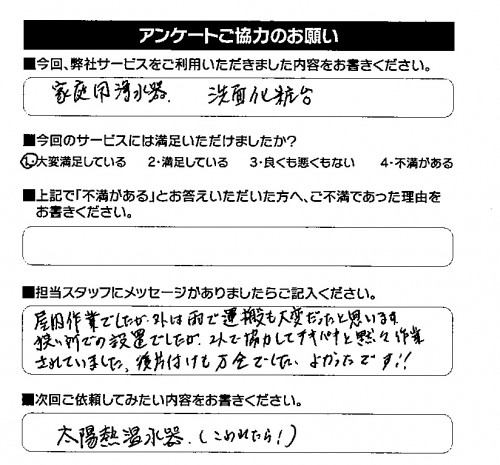 アンケートご協力のお願い
■今回、弊社サービスをご利用いただきました内容をお書きください。
家庭用浄水器、 洗面化粧台
■今回のサービスには満足いただけましたか?
1.大変満足している 2・満足している 3・良くも悪くもない 4・不満がある
■上記で「不満がある」とお答えいただいた方へ、ご不満であった理由を
お書きください。
■担当スタッフにメッセージがありましたらご記入ください。
屋内作業でしたが外は雨で運搬も大変だったと思います
狭い所での設置でしたが、2人で協力してテキパキと黙々作業
されていました。後片付けも万全でした。よかったです!!
■次回ご依頼してみたい内容をお書きください。
太陽熱温水器.(こわれたら!)